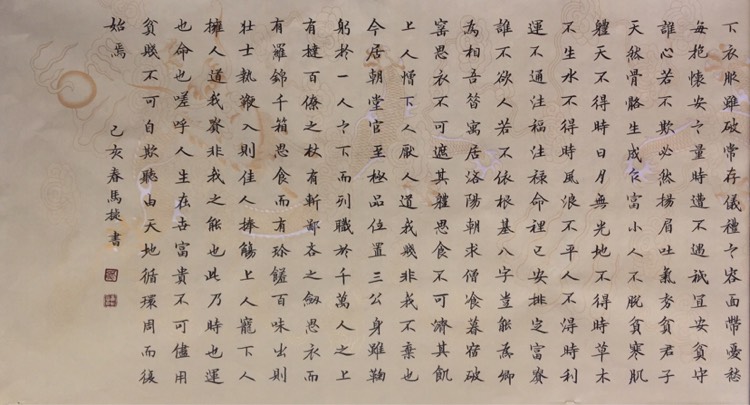 下衣服雖破常存儀禮之容面帶憂愁
每抱懷安之量時遭不遇祇宜安貧守
心若不欺必然揚眉吐氣貧君子
天然骨骼生成乍富小人不脫貧寒肌
體天不得時日月無光地不得時草木
不生水不得時風浪不平人不得時利
運不通注福注祿命裡已安排定富貴
誰不欲人若不依根基八字豈能為卿
為相吾昔寓居洛陽朝求僧食暮宿破
窯思衣不可遮其體思食不可濟其飢
上人憎下人厭人道我賤非我不棄也
今居朝堂官至極品位置三公身雖鞠
躬於一人之下而列職於千萬人之上
有撻百僚之杖有斬鄙吝之劍思衣而
有羅錦千箱思食而有珍饈百味出則
壯士執鞭入則佳人捧觴上人寵下人
擁人道我貴非我之能也此乃時也運
也命也嗟呼人生在世富貴不可儘用
貧賤不可自欺聽由天地循環周而復
始焉 己亥春馬書